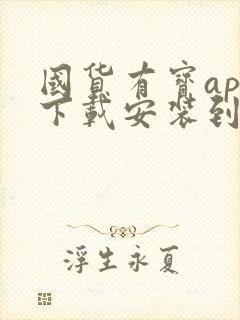 國貨有寶ap
下載安裝到
浮生永夏